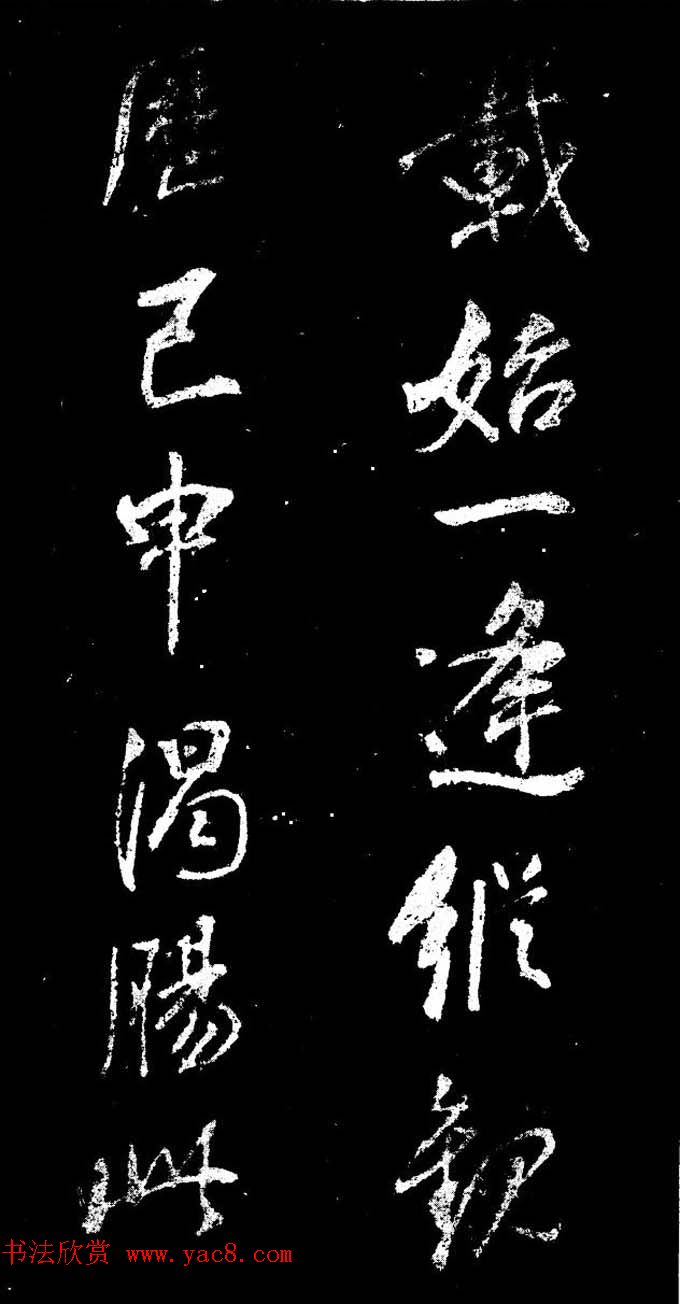 載始一逢縱觀
歷巳申渴腸此
书法欣赏 www.yac8.com